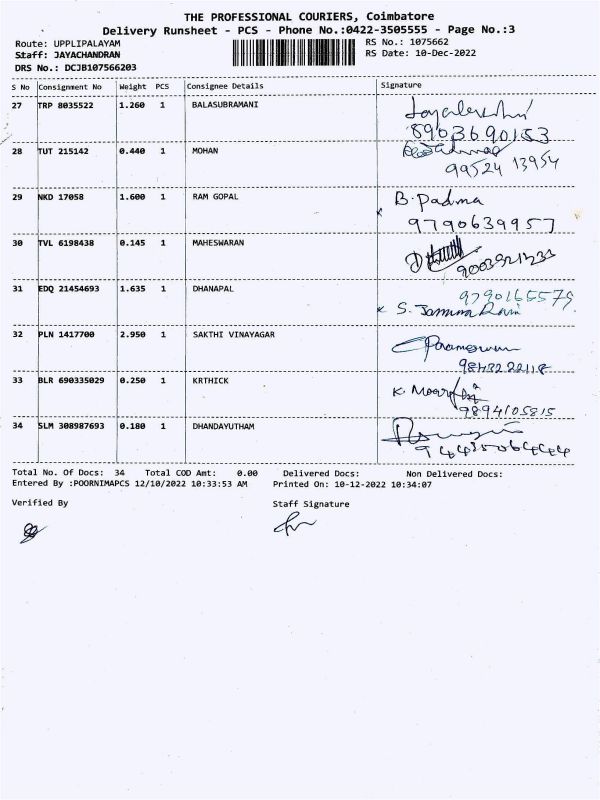 THE PROFESSIONAL COURIERS, Coimbatore
Delivery Runsheet - PCS - Phone No.:0422-3505555 - Page No.:3
Route: UPPLIPALAYAM RS No.: 1075662
Staff: JAYACHANDRAN RS Date: 10-Dec-2022
DRS No.: DCJB107566203
S No Consignment No Weight PCS Consignee Details Signature
27 TRP 8035522 1.260 1 BALASUBRAMANI
8903690153
28 TUT 215142 0.440 1 MOHAN
99524 13954
29 NKD 17058 1.600 1 RAM GOPAL B. Padma
9790639957
30 TVL 6198438 0.145 1 MAHESWARAN
9003921233
31 EDQ 21454693 1.635 1 DHANAPAL 9790165579
S.
32 PLN 1417700 2.950 1 SAKTHI VINAYAGAR
9843222118
33 BLR 690335029 0.250 1 KRTHICK K.
9894105815
34 SLM 308987693 0.180 1 DHANDAYUTHAM
Total No. Of Docs: 34 Total COD Amt: 0.00 Delivered Docs: Non Delivered Docs:
Entered By :POORNIMAPCS 12/10/2022 10:33:53 AM Printed On: 10-12-2022 10:34:07
Verified By Staff Signature